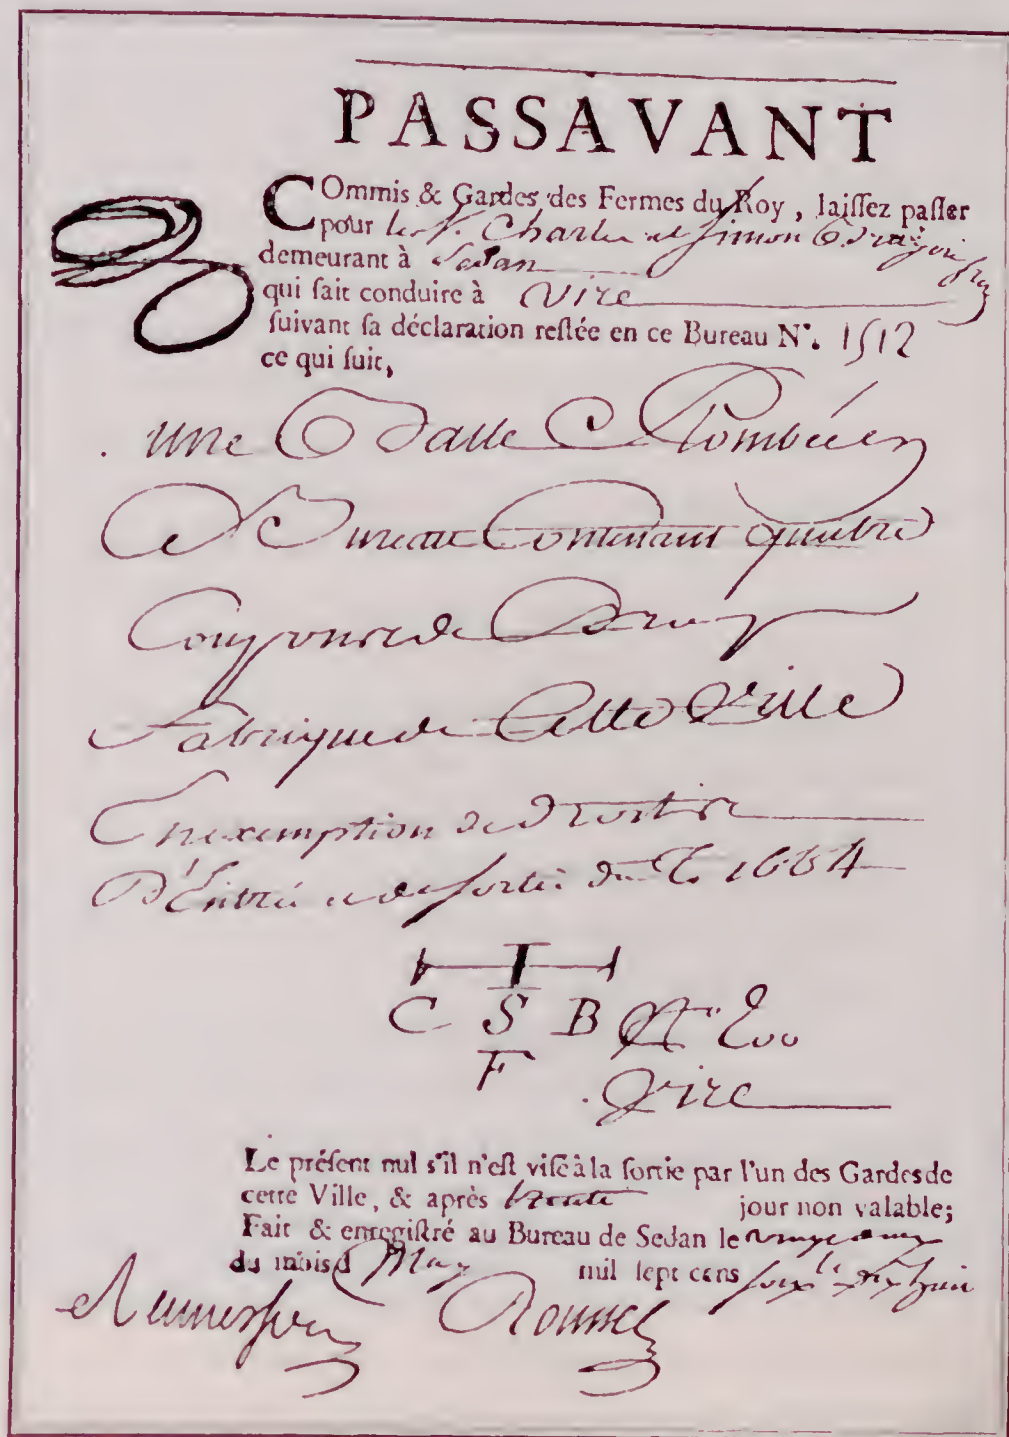 PASSAVANT
COmmis & Gardes des Fermes du Roy, laissez passer
pour les Srs. Charles et Simon
demeurant à Sedan
qui fait conduire à Vire
suivant sa déclaration restée en ce Bureau N°. 1512
ce qui suit,
une Balle Plombée en
ce Bureau Contenant quatre
Coupons de Drap
fabrique de Cette Ville
En exemption de Droits
D'Entrée et de sortie du T. 1664
C S B
F
Vire
Le présent nul s'il n'est visé à la sortie par l'un des Gardes de
cette Ville, & après trente jour non valable;
Fait & enregistré au Bureau de Sedan le
du mois d May mil sept cens
Roussel